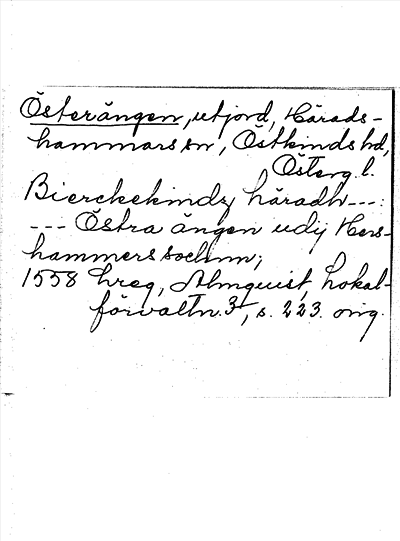 Österängen, utjord, Härads-
hammars sn, Östkinds hd,
Österg. l.
Bierckekindz häradh ---:
--- Östra ängen udij Hers-
hammers sochnn;
1558 hreg, Almquist, Lokal-
förvaltn. 3, s. 223. orig.